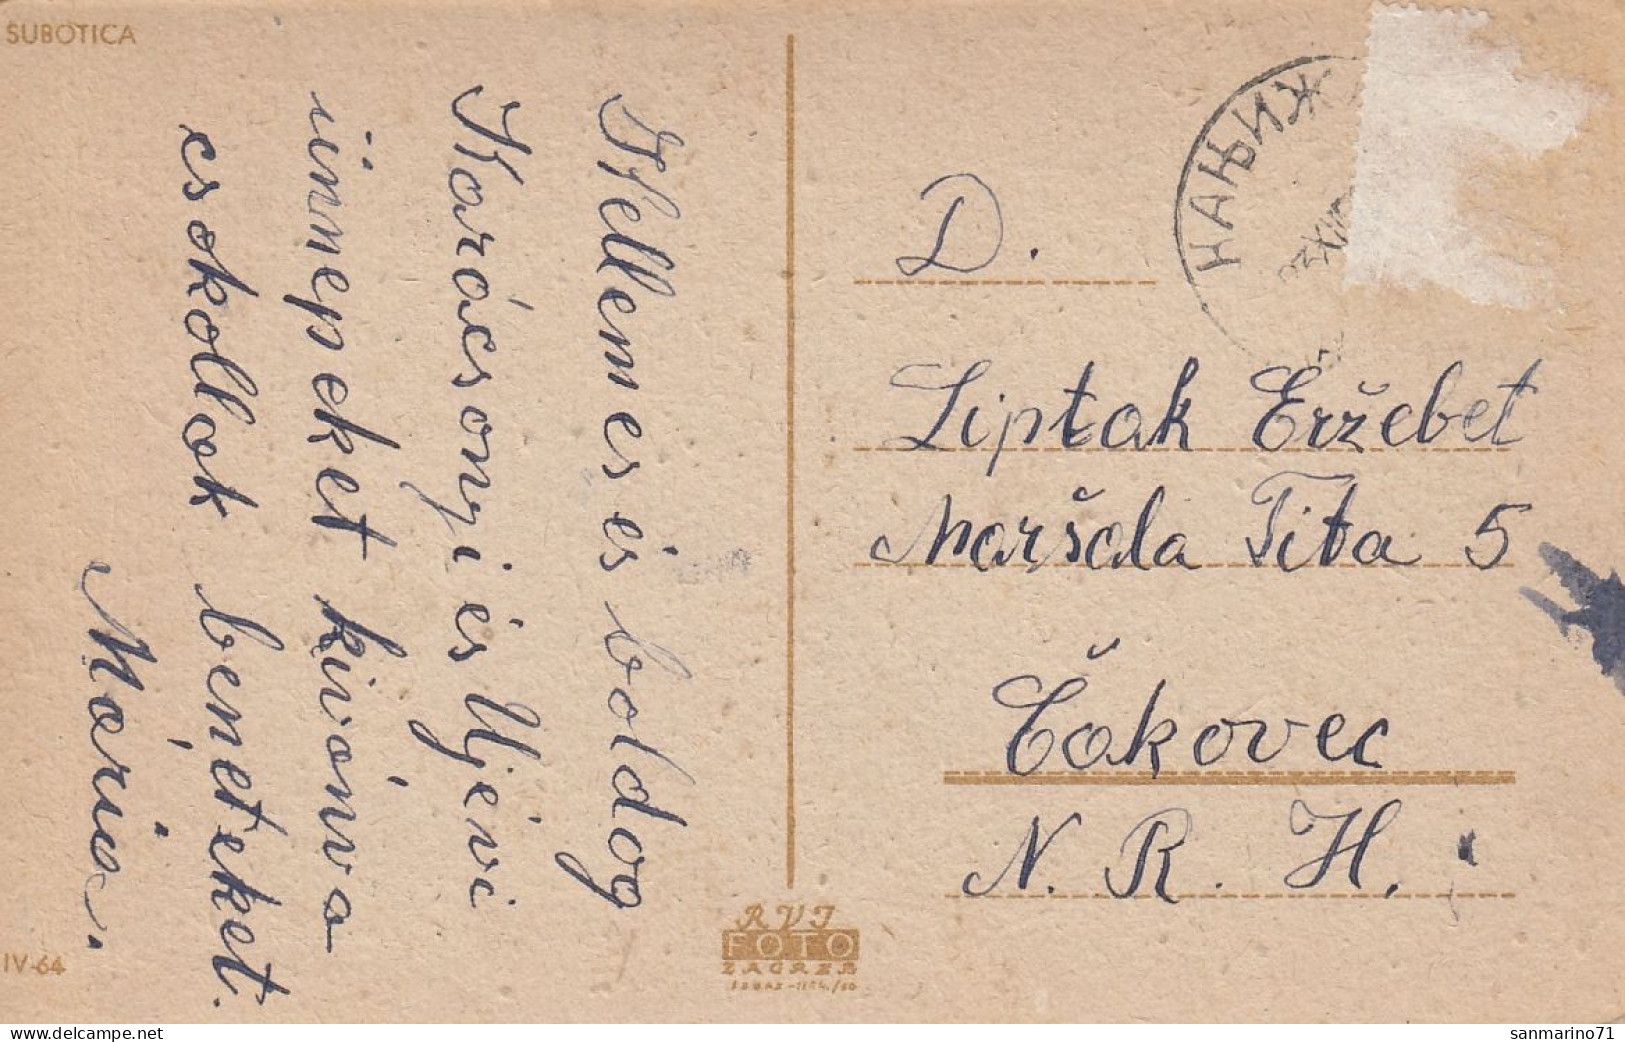 SUBOTICA
Kellemes és boldog
Karácsonyi és Ujévi
ünnepeket kivánva
csokollak beneteket.
Mária.
IV-64
RVI
FOTO
ZAGREB
КАЊИЖ
D.
Liptak Eržebet
Maršala Tita 5
Čakovec
N. R. H.
sanmarino71